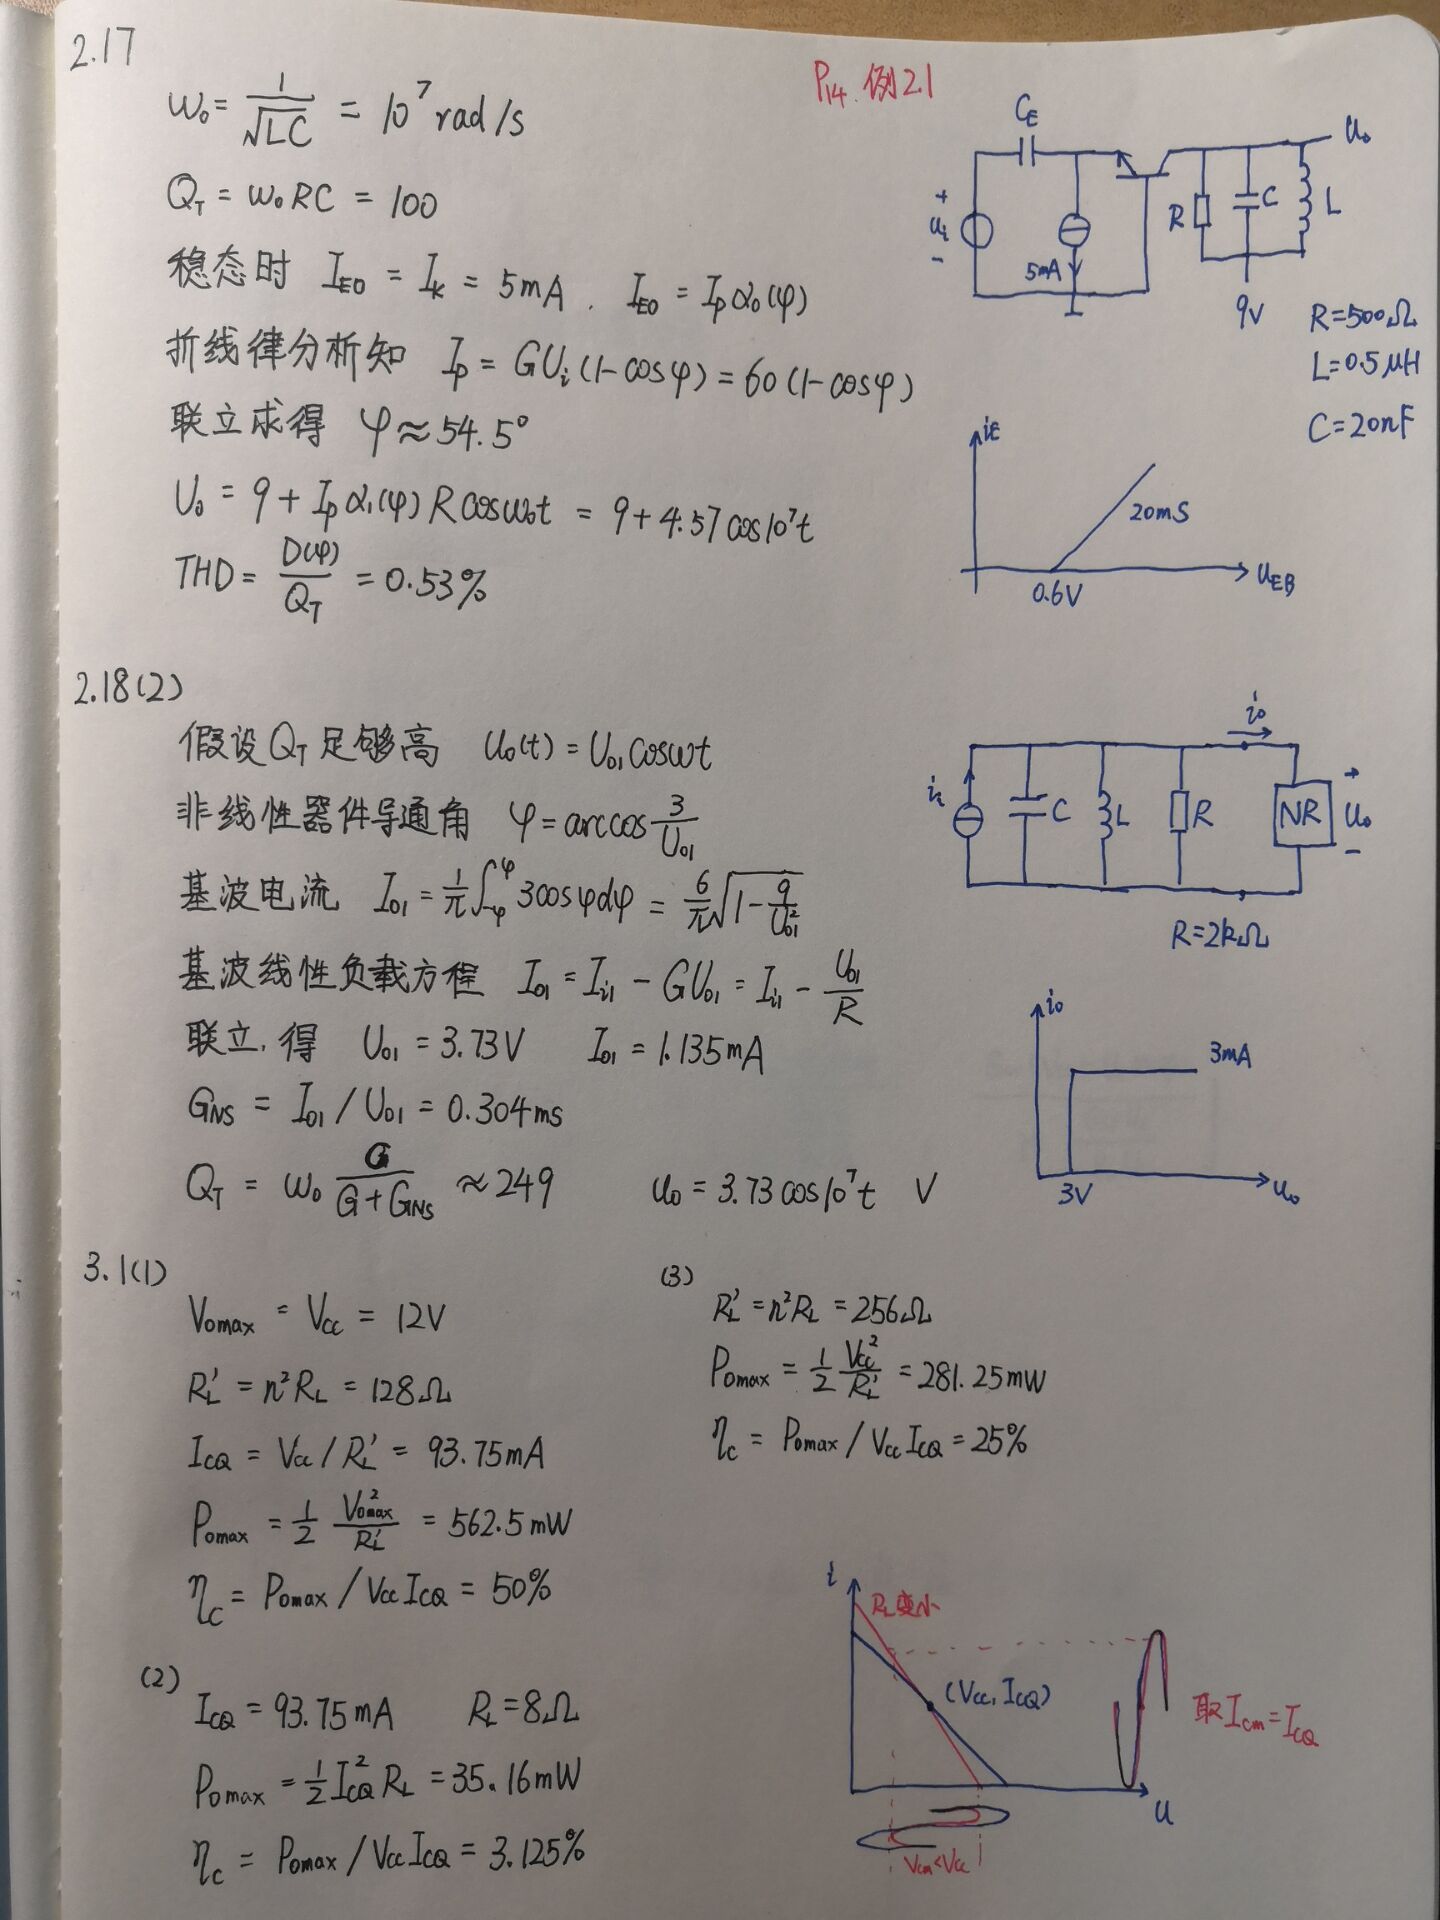 2.17
P14. 例2.1
ω₀ = 1/√LC = 10⁷ rad/s
Q_T = ω₀RC = 100
稳态时 I_E0 = I_K = 5mA . I_E0 = I_p α₀(φ)
折线律分析知 I_p = GU_i(1-cosφ) = 60(1-cosφ)
联立求得 φ≈54.5°
U₀ = 9 + I_p α₁(φ) R cosω₀t = 9 + 4.57 cos10⁷t
THD = D(φ)/Q_T = 0.53%
C_E
U₀
+
u_i
-
5mA
R
C
L
9V
R=500Ω
L=0.5μH
C=20nF
i_E
20mS
0.6V
u_EB
2.18(2)
假设Q_T足够高 u₀(t) = U₀₁cosωt
非线性器件导通角 φ = arccos 3/U₀₁
基波电流 I₀₁ = 1/π ∫_-φ^φ 3cosφdφ = 6/π √(1 - 9/U₀₁²)
基波线性负载方程 I₀₁ = I_i1 - GU₀₁ = I_i1 - U₀₁/R
联立,得 U₀₁ = 3.73V I₀₁ = 1.135mA
G_NS = I₀₁/U₀₁ = 0.304ms
Q_T = ω₀ G/(G+G_NS) ≈ 249 u₀ = 3.73cos10⁷t V
i₀
i_i
C
L
R
NR
+
U₀
-
R=2kΩ
i₀
3mA
3V
u₀
3.1(1)
V_omax = V_cc = 12V
R_L' = n²R_L = 128Ω
I_CQ = V_cc/R_L' = 93.75mA
P_omax = 1/2 V_omax²/R_L' = 562.5mW
η_C = P_omax/V_cc I_CQ = 50%
(3)
R_L' = n²R_L = 256Ω
P_omax = 1/2 V_cc²/R_L' = 281.25mW
η_c = P_omax/V_cc I_CQ = 25%
(2)
I_CQ = 93.75mA R_L = 8Ω
P_omax = 1/2 I_CQ² R_L = 35.16mW
η_c = P_omax/V_cc I_CQ = 3.125%
i
R_L变小
(V_cc, I_CQ)
取I_cm = I_CQ
u
V_cm<V_cc